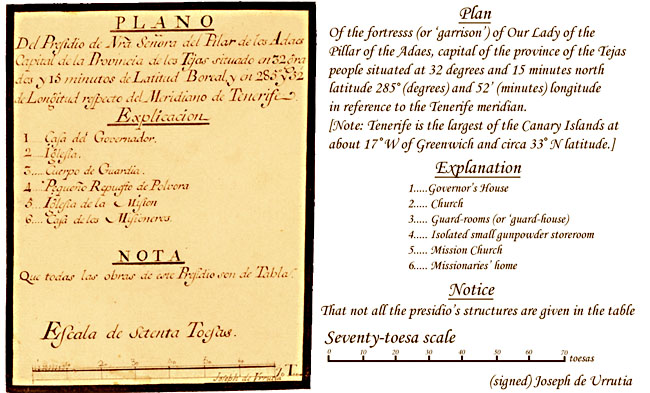 PLANO
Del Presidio de Nrã Señora del Pilar de los Adaes
Capital de la Provincia de los Tejas situado en 32 gra
dos y 15 minutos de Latitud Boreal, y en 285 y 52
de Longitud respecto del Meridiano de Tenerife.
Explicacion
1 Casa del Governador.
2 Iglesia.
3 Cuerpo de Guardia.
4 Pequeño Repuesto de Polvora
5 Iglesia de la Mision
6 Casa de los Misioneros.
NOTA
Que todas las obras de este Presidio son de Tabla.
Escala de Setenta Toesas.
T.
Joseph de Urrutia
Plan
Of the fortresss (or ‘garrison’) of Our Lady of the
Pillar of the Adaes, capital of the province of the Tejas
people situated at 32 degrees and 15 minutes north
latitude 285° (degrees) and 52’ (minutes) longitude
in reference to the Tenerife meridian.
[Note: Tenerife is the largest of the Canary Islands at
about 17° W of Greenwich and circa 33° N latitude.]
Explanation
1.....Governor’s House
2..... Church
3..... Guard-rooms (or ‘guard-house)
4..... Isolated small gunpowder storeroom
5..... Mission Church
6..... Missionaries’ home
Notice
That not all the presidio’s structures are given in the table
Seventy-toesa scale
0 10 20 30 40 50 60 70
toesas
(signed) Joseph de Urrutia